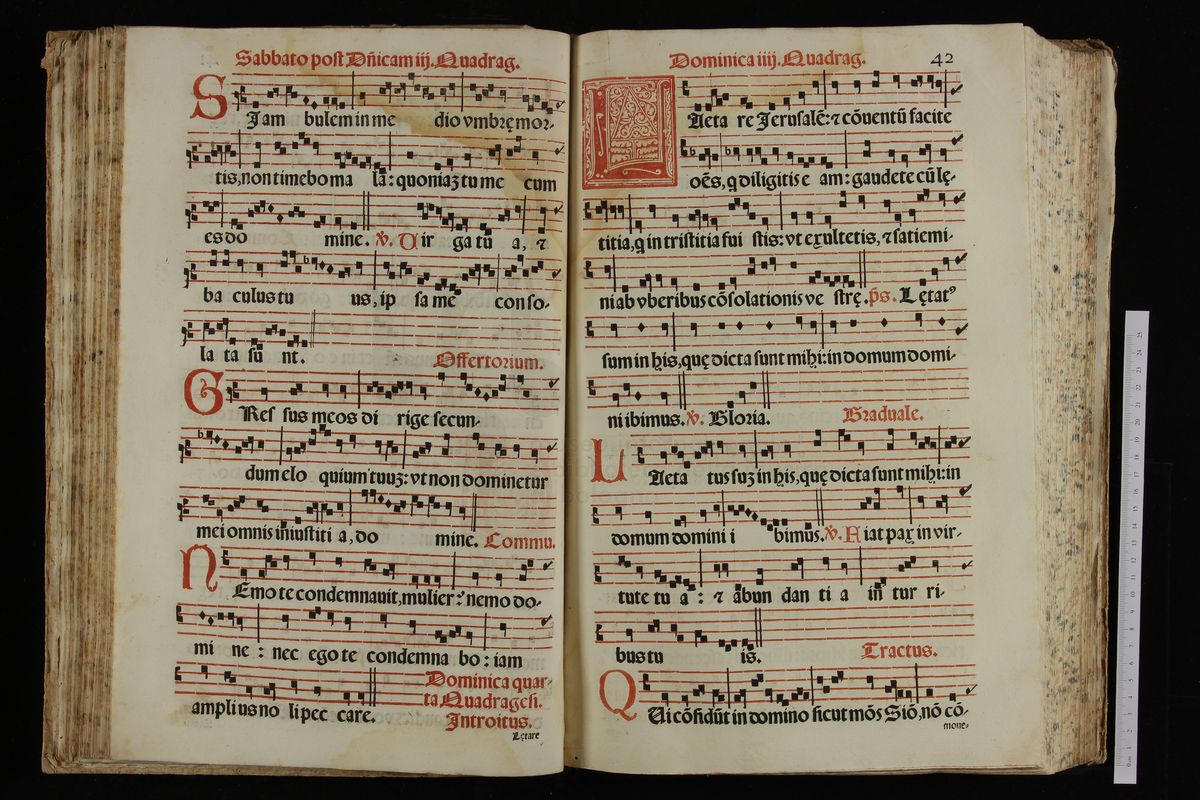 Sabbato post Dñicam iij. Quadrag.
S Iam bulem in me dio vmbrę mor-
tis, non timebo ma la: quoniaȝ tu me cum
es do mine. ℣. Uir ga tu a, ⁊
ba culus tu us, ip sa me conso-
la ta sũ nt. Offertorium.
GRes sus meos di rige secun-
dum elo quium tuuȝ: vt non dominetur
mei omnis iniustiti a, do mine. Commu.
NEmo te condemnauit, mulier: nemo do-
mi ne: nec ego te condemna bo: iam
amplius no li pec care. Dominica quar-
ta Quadragesi.
Introitus.
Lętare
Dominica iiij. Quadrag. 42
LAeta re Jerusalẽ: ⁊ cõuentũ facite
oẽs, q diligitis e am: gaudete cũ lę-
titia, q in tristitia fui stis: vt exultetis, ⁊ satiemi-
ni ab vberibus cõsolationis ve strę. p̃s. Lętatꝰ
sum in his, quę dicta sunt mihi: in domum domi-
ni ibimus. ℣. Gloria. Graduale.
LAeta tus suȝ in his, quę dicta sunt mihi: in
domum domini i bimus. ℣. Fiat pax in vir-
tute tu a: ⁊ abun dan ti a in tur ri-
bus tu is. Tractus.
QUi cõfidũt in domino sicut mõs Siõ, nõ cõ-
moue-
0 cm 1 2 3 4 5 6 7 8 9 10 11 12 13 14 15 16 17 18 19 20 21 22 23 24 25